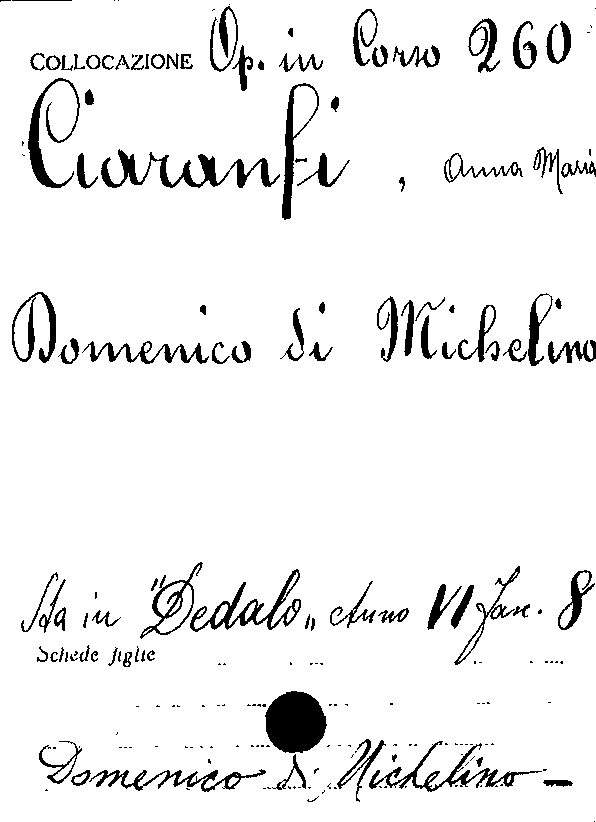 COLLOCAZIONE Op. in Corso 260
Ciaranfi, Anna Maria
Domenico di Michelino
Sta in "Dedalo„ Anno VI Fasc. 8
Schede figlie
Domenico di Michelino -